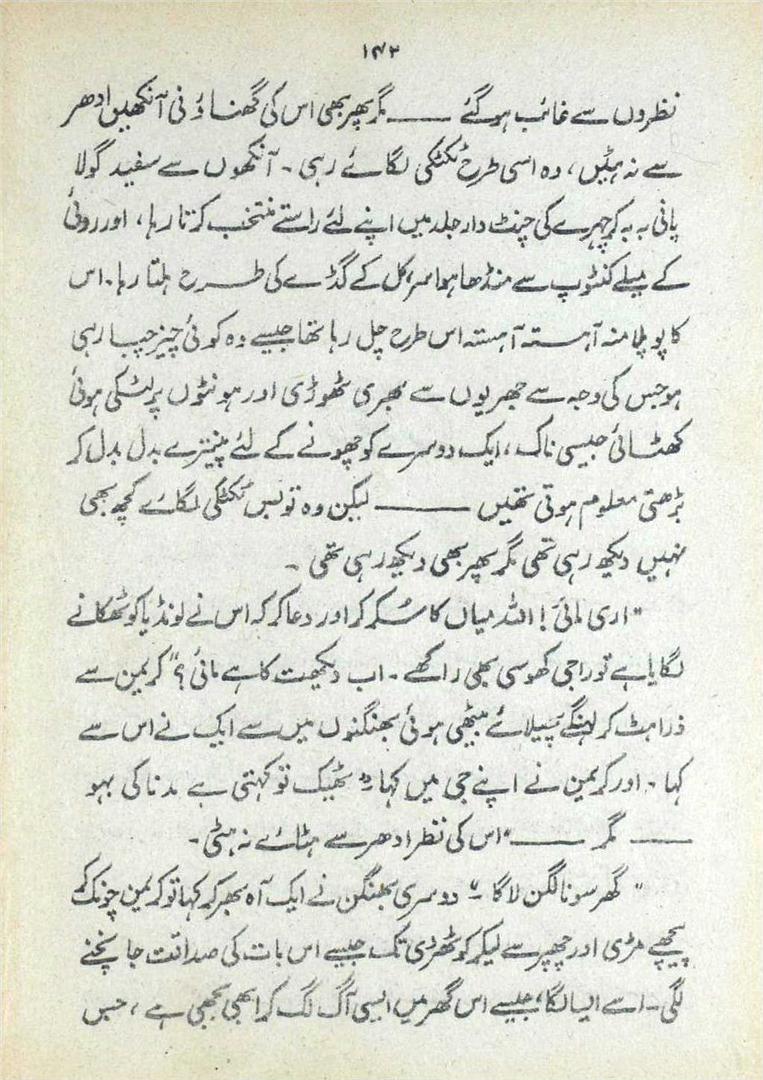 ۱۴۲
نظروں سے غائب ہو گئے ــــــ مگر پھر بھی اس کی گھناؤنی آنکھیں ادھر
سے نہ ہٹیں، وہ اسی طرح ٹکٹکی لگائے رہی ۔ آنکھوں سے سفید گولا
پانی بہ بہ کر چہرے کی چنٹ دار جلد میں اپنے لئے راستے منتخب کرتا رہا، اور روئی
کے میلے کنٹوپ سے منڈھا ہوا سر، کل کے گڈے کی طرح ہلتا رہا۔ اس
کا پوپلا منہ آہستہ آہستہ اس طرح چل رہا تھا جیسے وہ کوئی چیز چبا رہی
ہو جس کی وجہ سے جھریوں سے بھری ٹھوڑی اور ہونٹوں پر لٹکی ہوئی
کھٹائی جیسی ناک، ایک دوسرے کو چھونے کے لئے پینترے بدل بدل کر
بڑھتی معلوم ہوتی تھیں ــــــــــ لیکن وہ تو بس ٹکٹکی لگائے کچھ بھی
نہیں دیکھ رہی تھی مگر پھر بھی دیکھ رہی تھی ۔
"اری مائی! اللہ میاں کا سُکر کر اور دعا کر کہ اس نے لونڈیا کو ٹھکانے
لگایا ہے تو راجی کھوسی بھی راکھے ۔ اب دیکھت کا ہے مائی؟" کریمن سے
ذرا ہٹ کر لہنگے پھیلائے بیٹھی ہوئی بھنگنوں میں سے ایک نے اس سے
کہا ۔ اور کریمن نے اپنے جی میں کہا "ٹھیک تو کہتی ہے مدنا کی بہو
ــــــ مگر ــــــــ" اس کی نظر ادھر سے ہٹائے نہ ہٹی ۔
"گھر سونا لگن لاگا ۔" دوسری بھنگن نے ایک آہ بھر کر کہا تو کریمن چونک کے
پیچھے مڑی اور چھپر سے لیکر کوٹھڑی تک جیسے اس بات کی صداقت جانچنے
لگی۔ اسے ایسا لگا، جیسے اس گھر میں ایسی آگ لگ کر ابھی بجھی ہے، جس